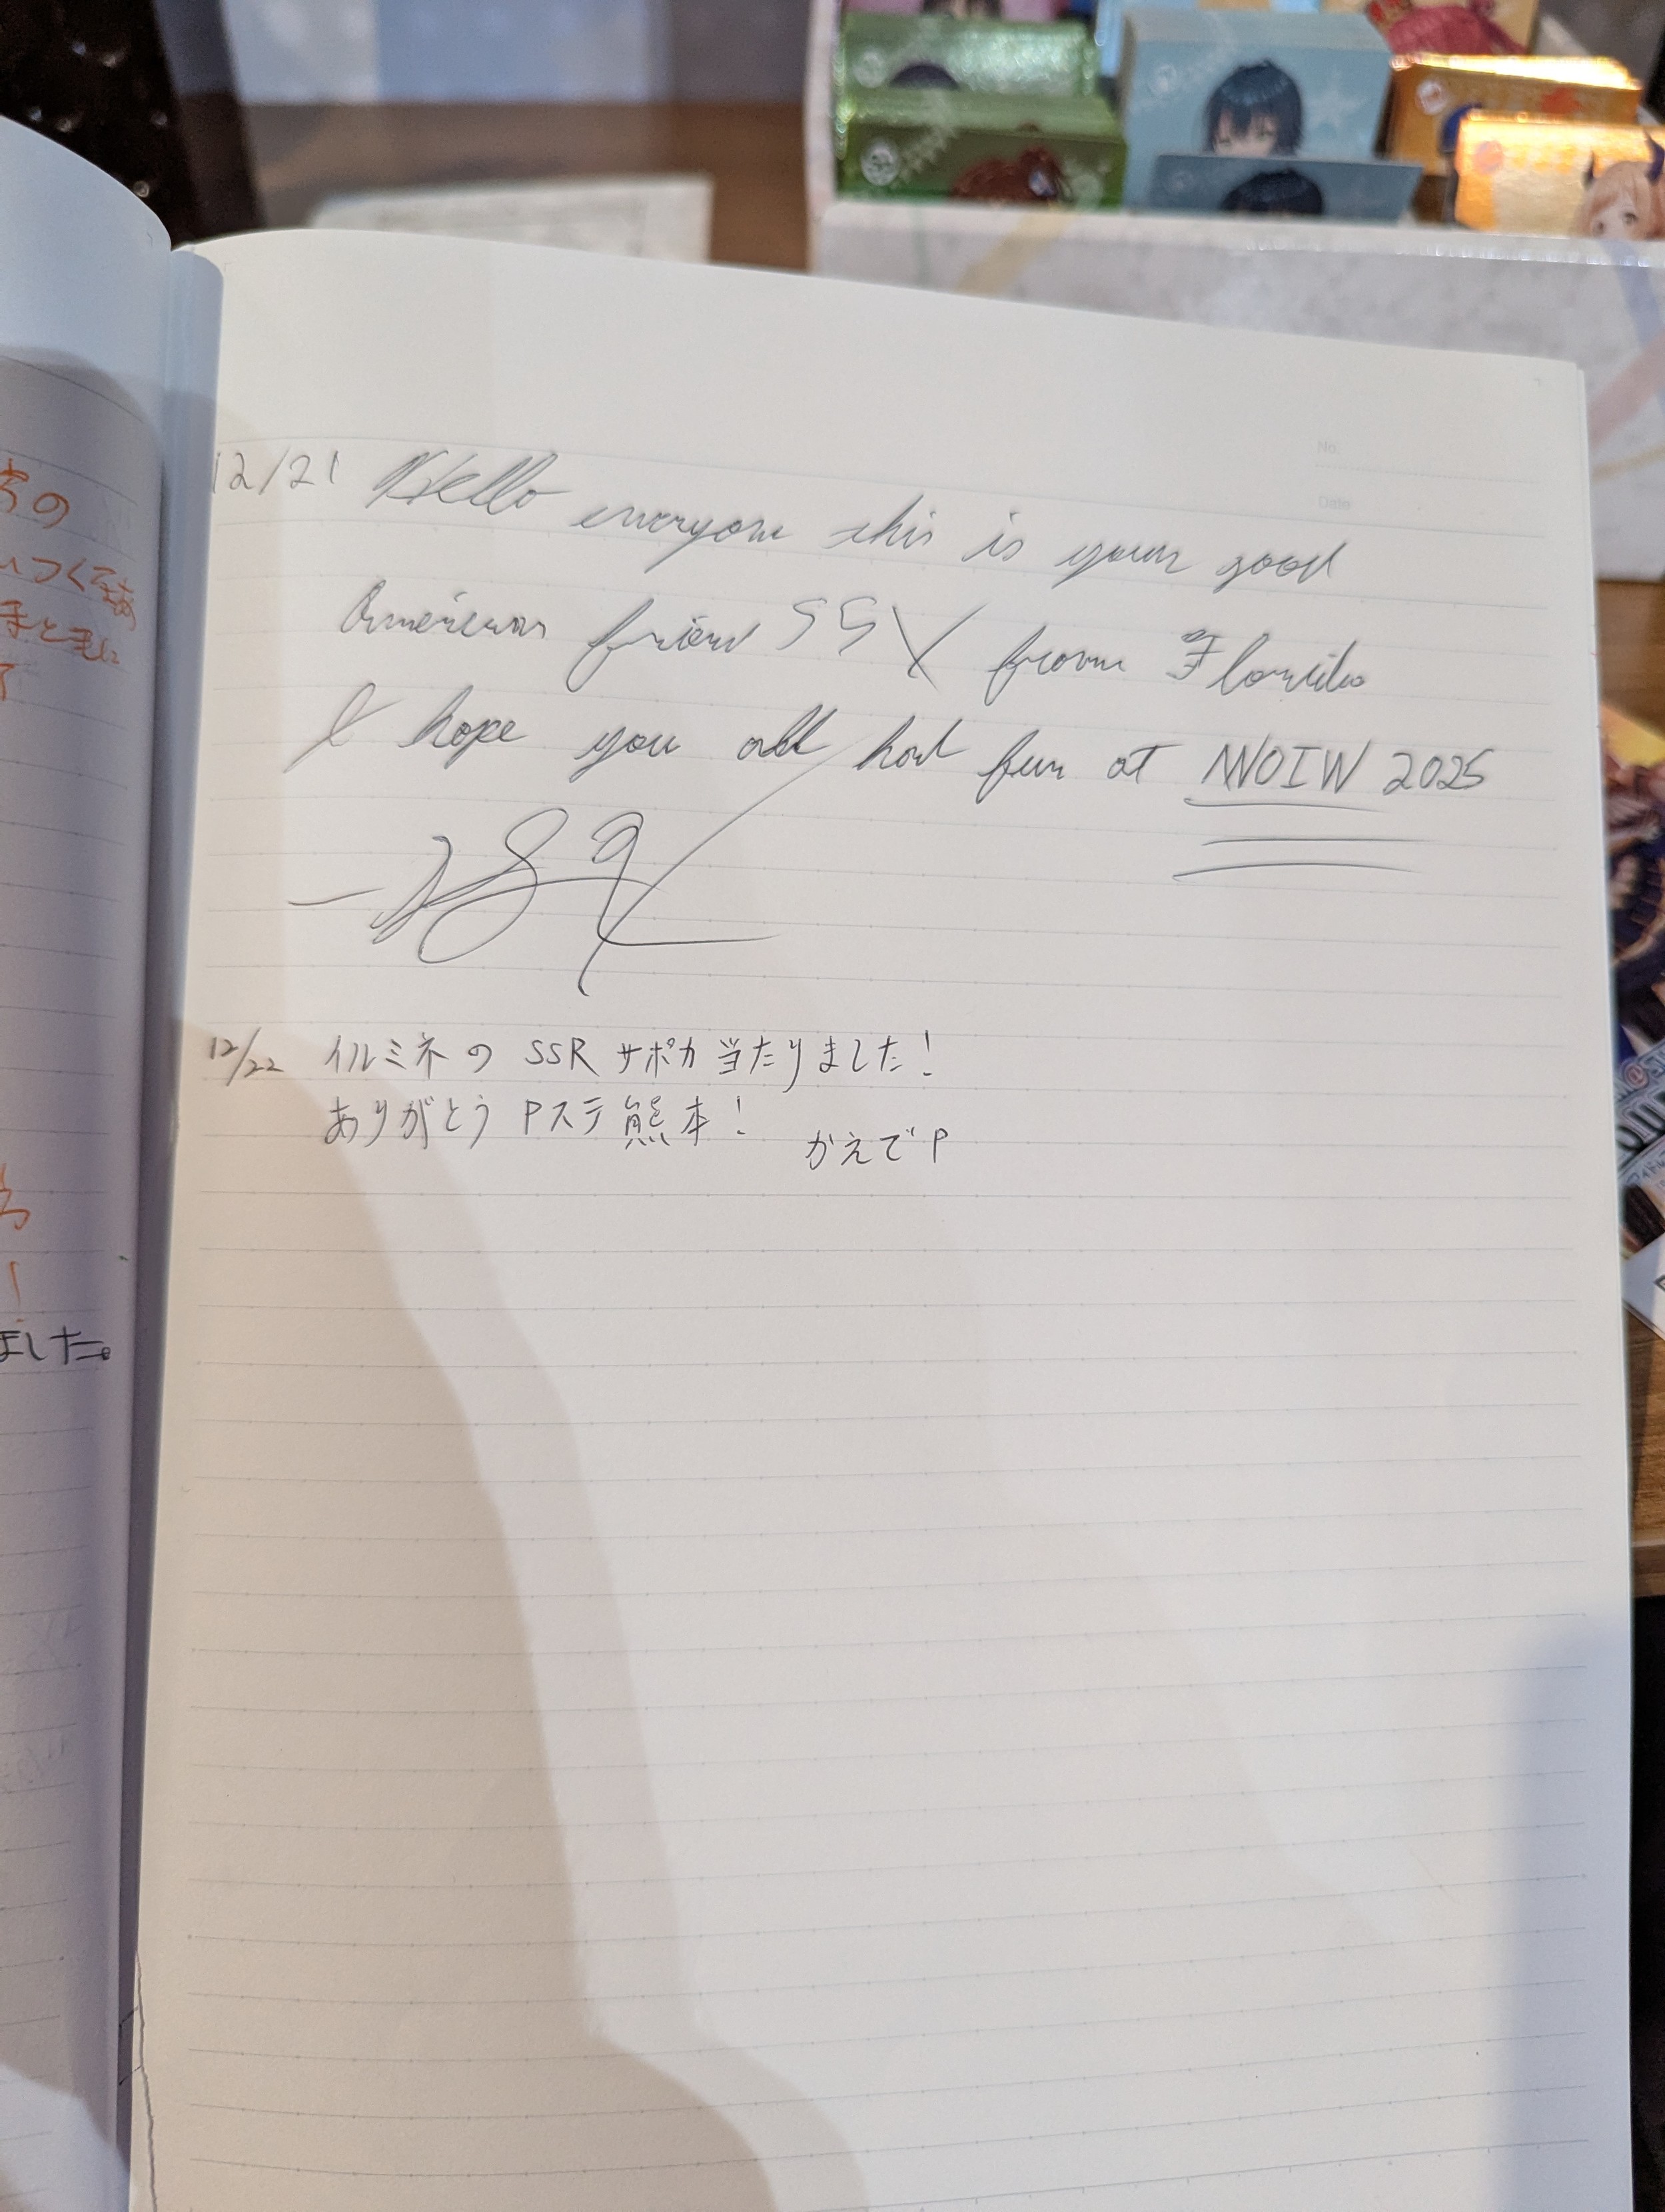 ちの
いつくるあ
まともに
て
ち
!
ました。
No.
Date
12/21 Hello everyone this is your good
American friend SSX from Florida
I hope you all had fun at MOIW 2025
12/22 イルミネの SSR サポカ当たりました!
ありがとう Pステ熊本!
かえでP